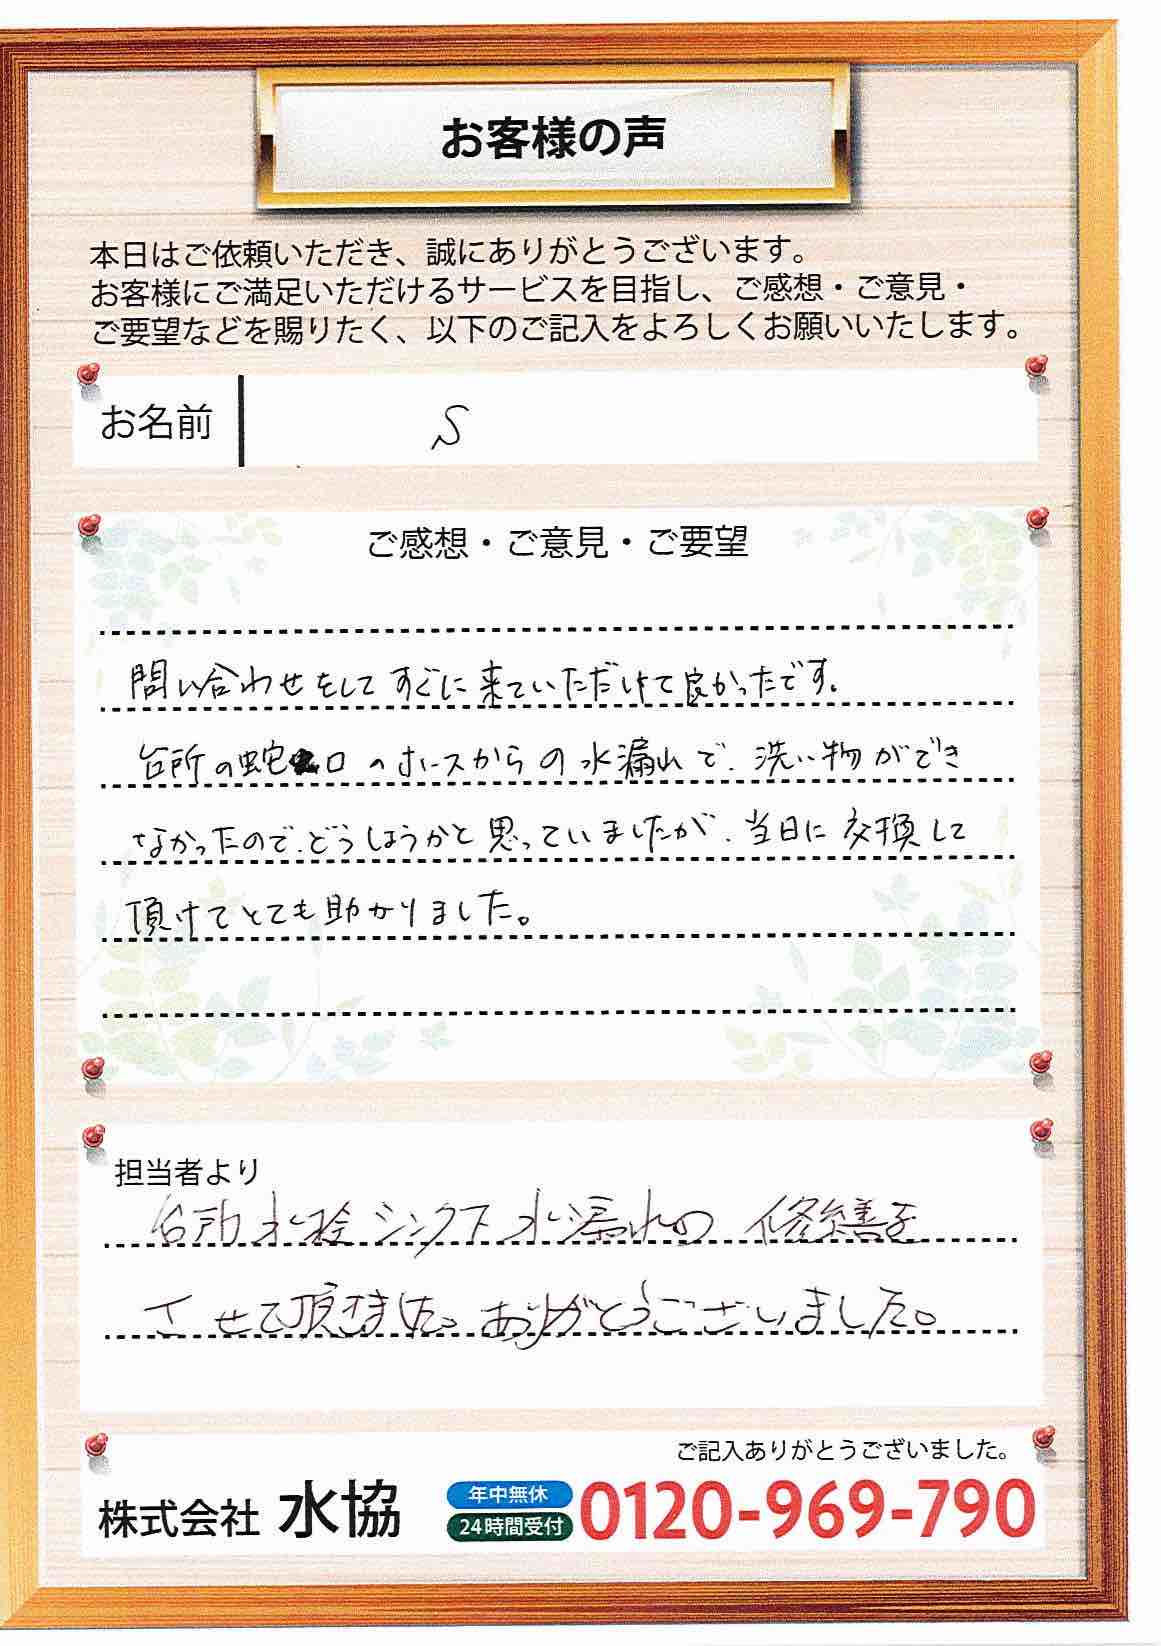 お客様の声
本日はご依頼いただき、誠にありがとうございます。
お客様にご満足いただけるサービスを目指し、ご感想・ご意見・
ご要望などを賜りたく、以下のご記入をよろしくお願いいたします。
お名前 S
ご感想・ご意見・ご要望
問い合わせをしてすぐに来ていただけて良かったです。
台所の蛇口のホースからの水漏れで、洗い物ができ
なかったので、どうしようかと思っていましたが、当日に交換して
頂けてとても助かりました。
担当者より
台所水栓シンク下水漏れの修繕を
させて頂きました。ありがとうございました。
ご記入ありがとうございました。
株式会社 水協 年中無休 24時間受付 0120-969-790